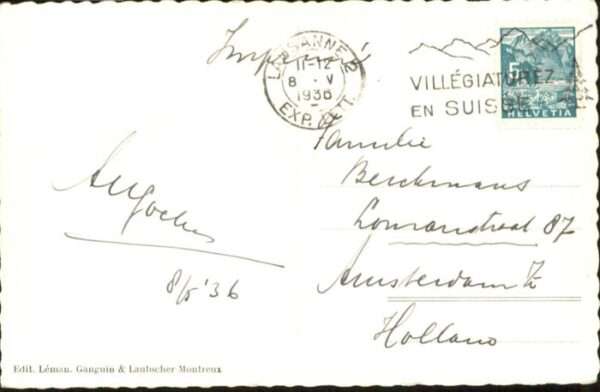 Imprimé
LAUSANNE 2
11-12
8 · V
1936
EXP. LETT.
VILLÉGIATUREZ
EN SUISSE
5
HELVETIA
Familie
Berckmans
87
Amsterdam Z
Holland
8/5 '36
Edit. Léman. Ganguin & Laubscher Montreux